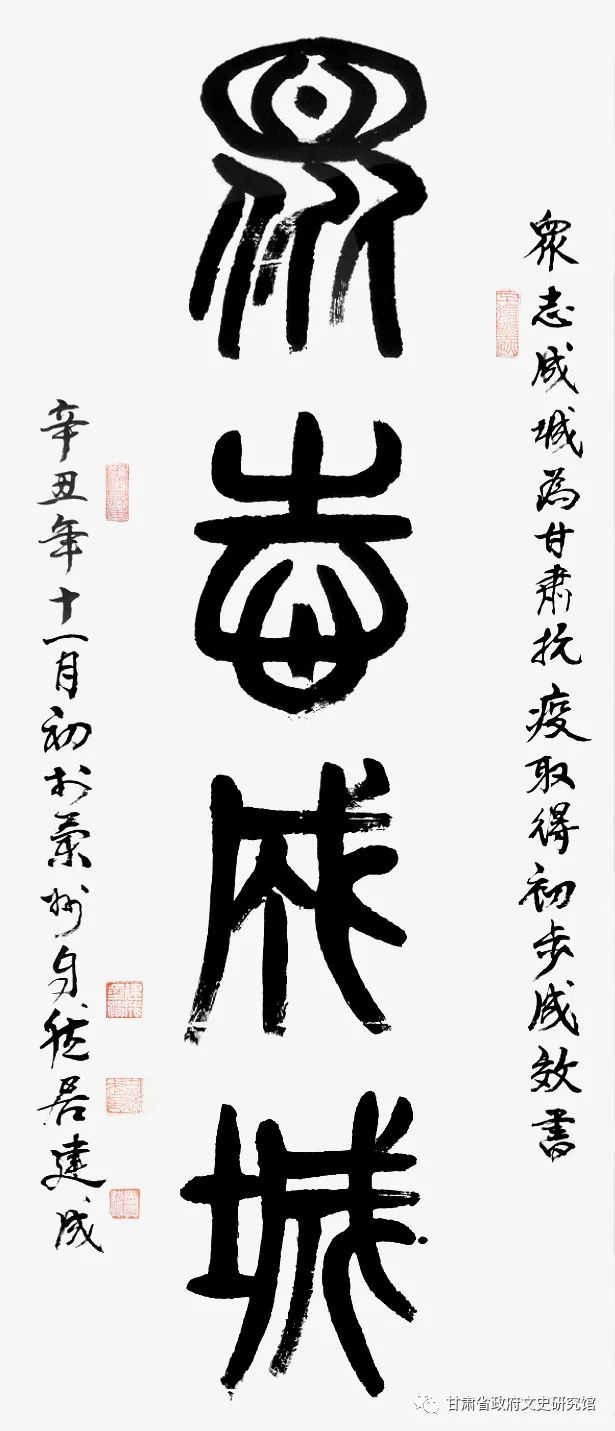 眾志成城為甘肅抗疫取得初步成效書
眾志成城
辛丑年十一月初於蘭州自然居建成
甘肃省政府文史研究馆